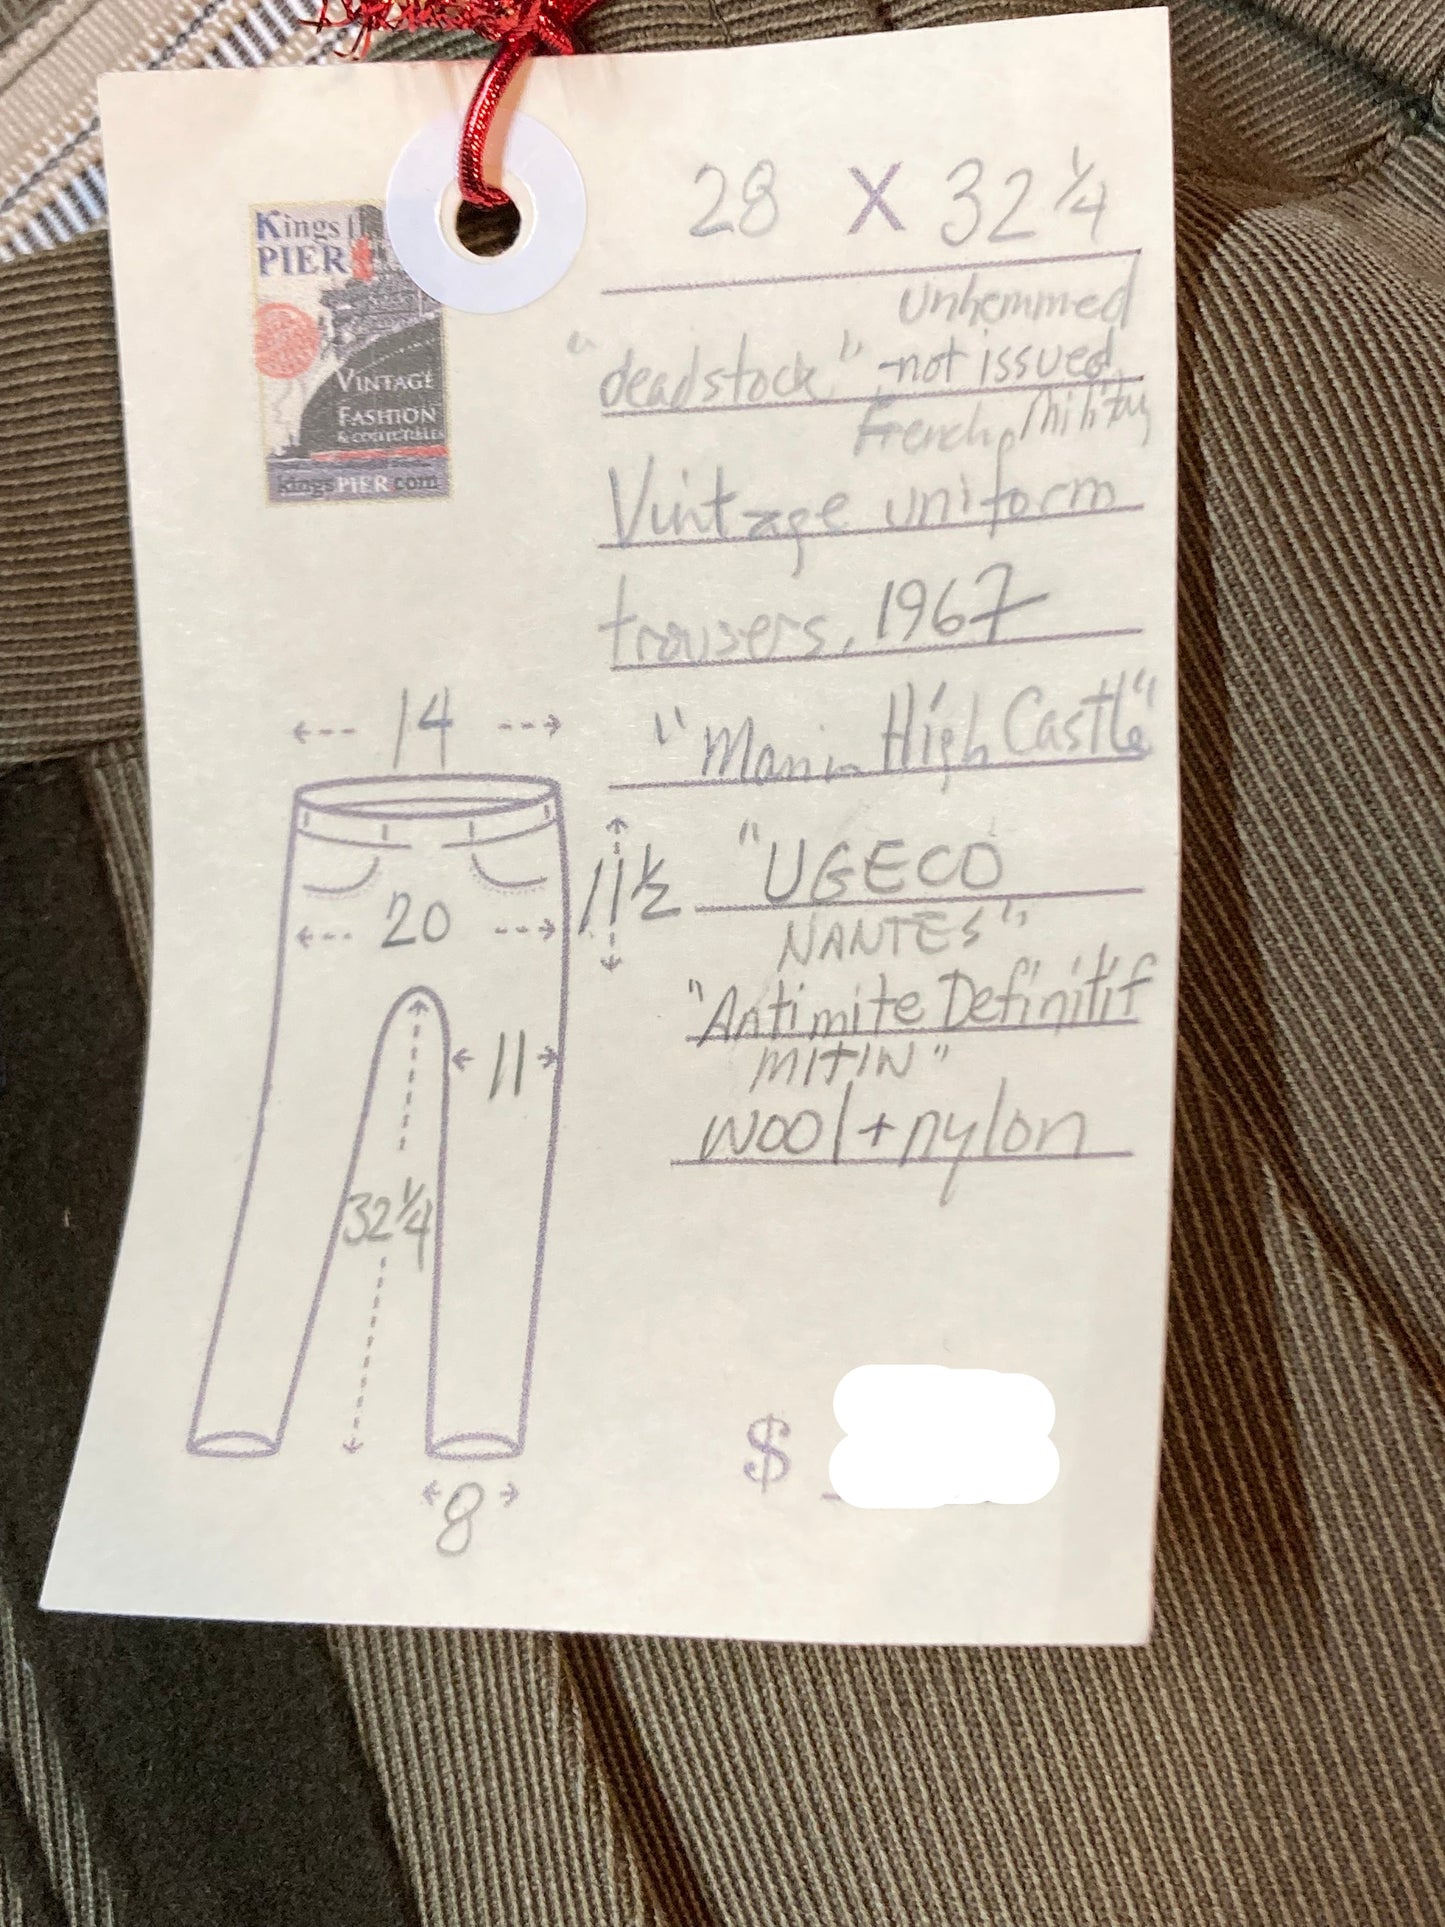 Kings
PIER
VINTAGE
FASHION
& COLLECTIBLES
kingsPIER.com
28 X 32 1/4
unhemmed
"deadstock" -not issued
French Military
Vintage uniform
trousers, 1967
"Man in High Castle"
"UGECO
NANTES"
"Antimite Definitif
MITIN"
wool + nylon
14
20
11 1/2
11
32 1/4
8
$